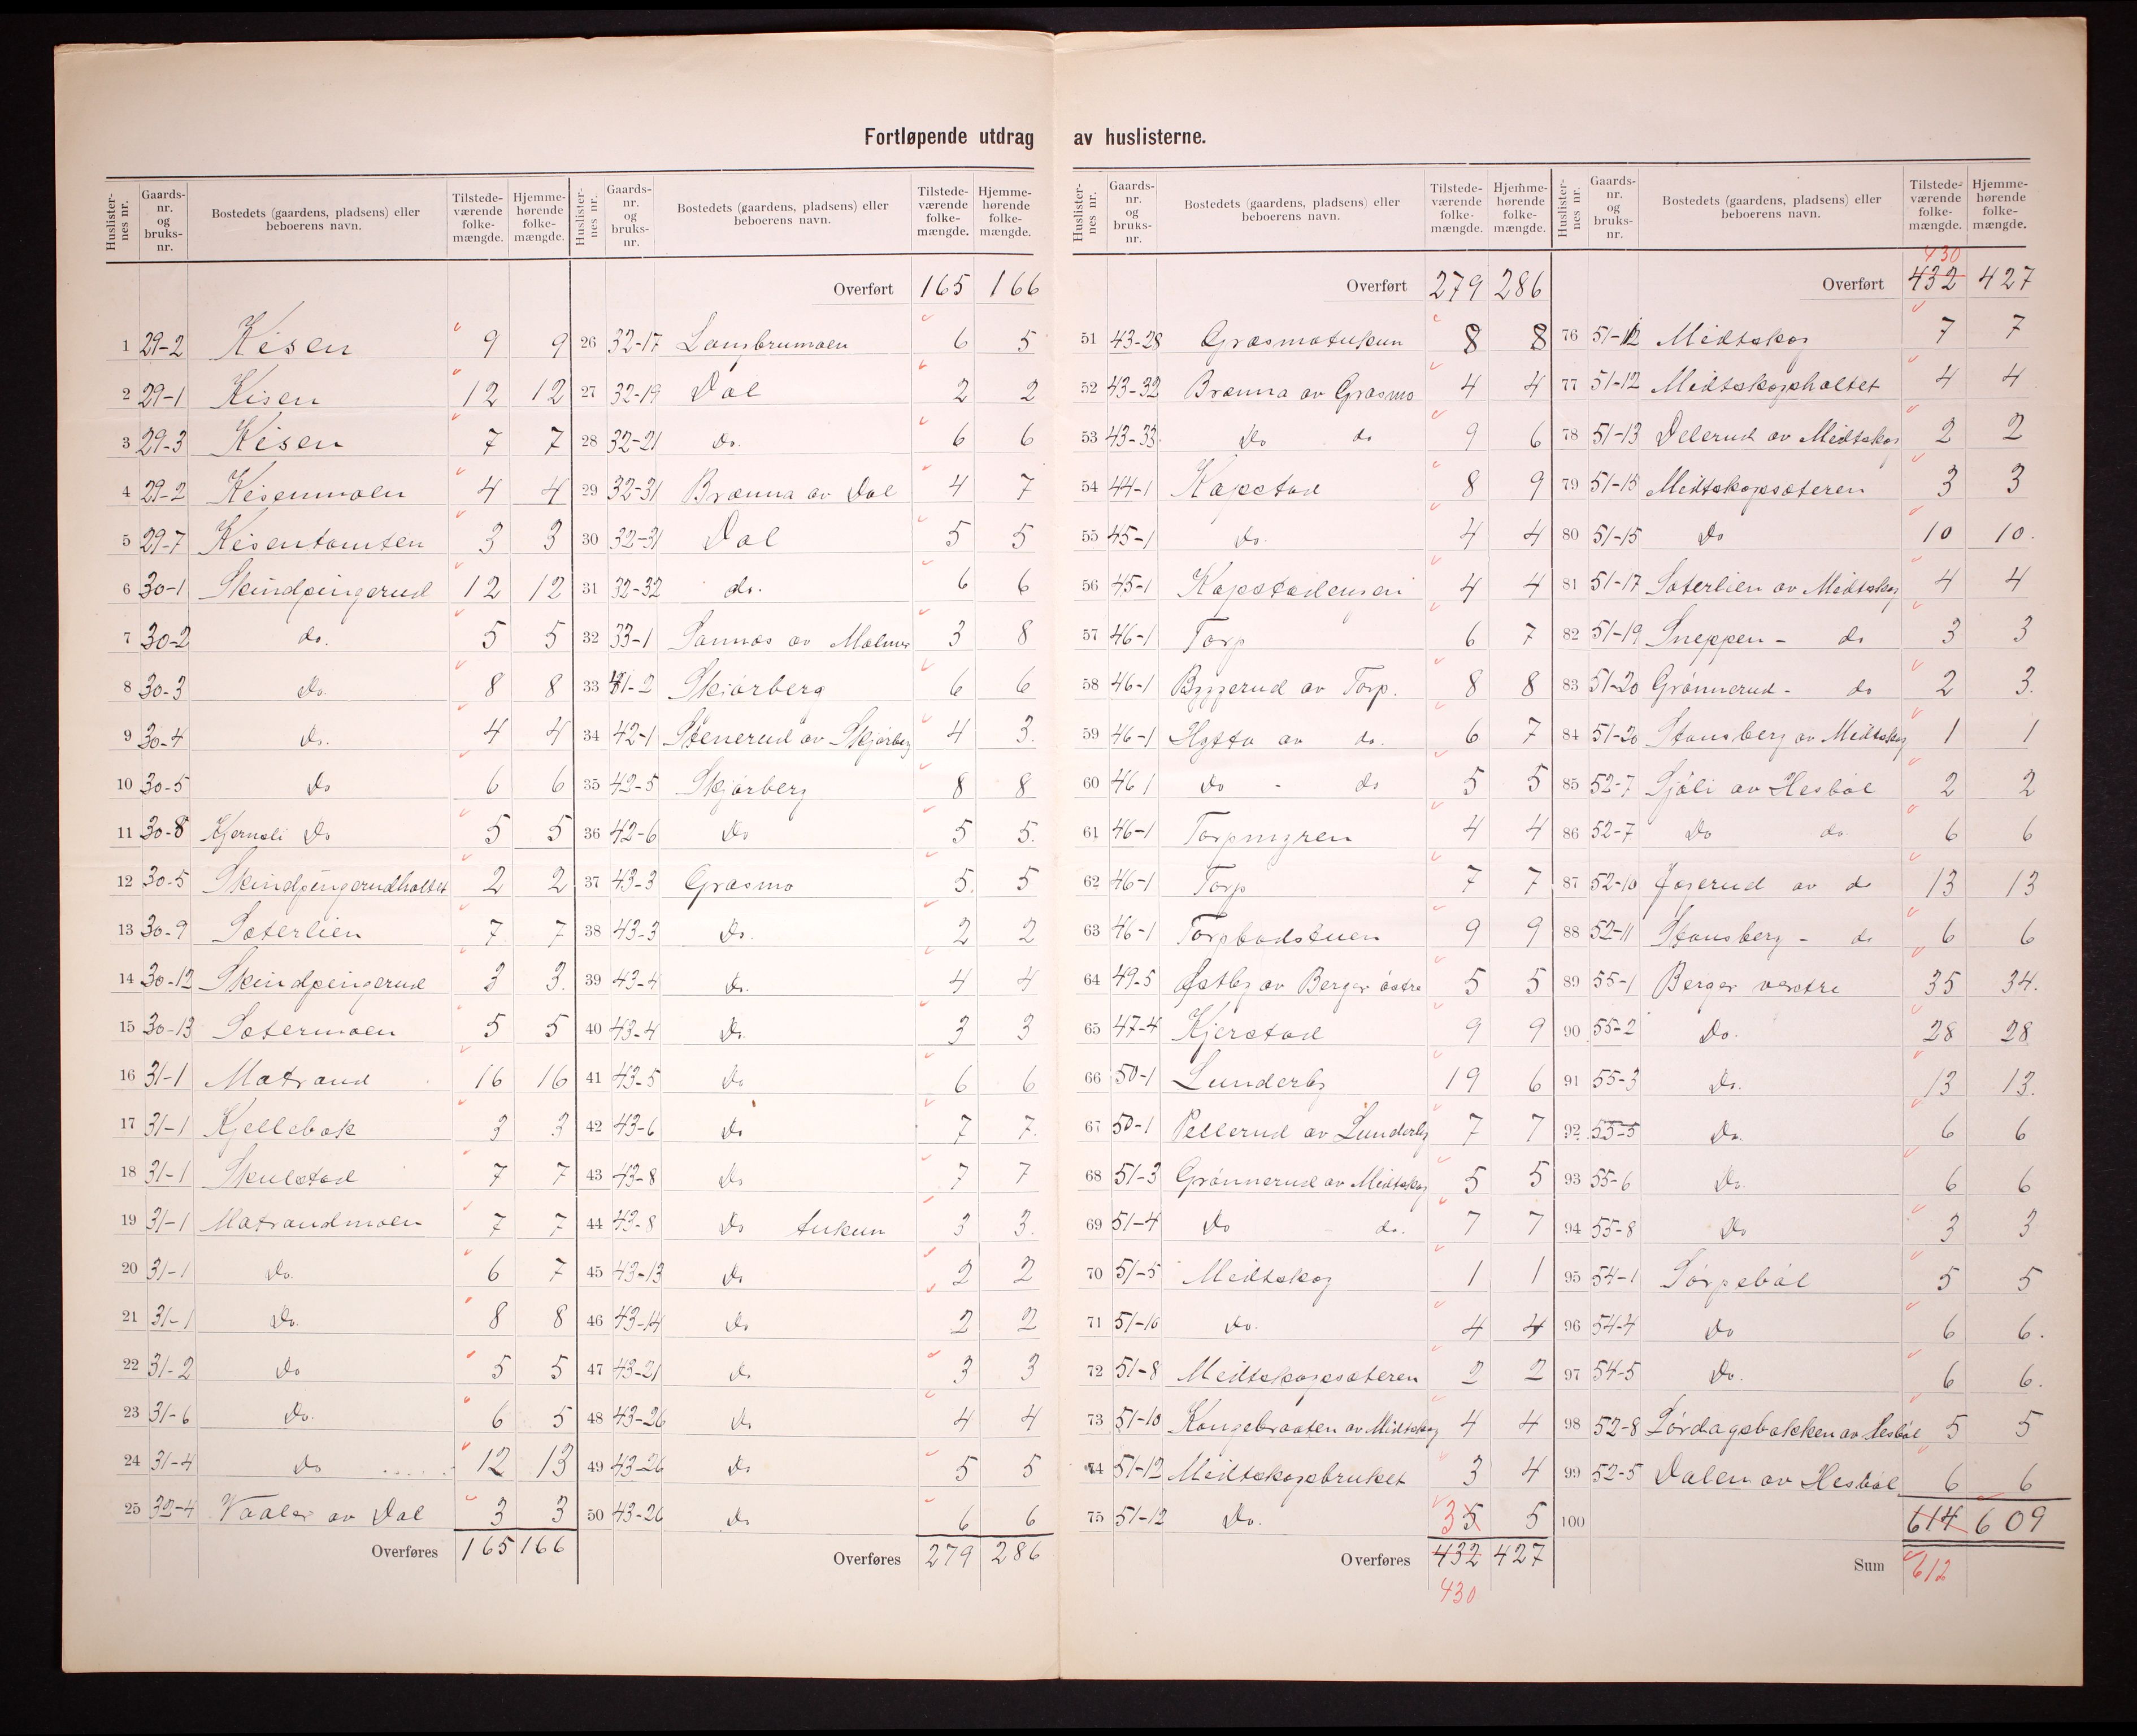 Fortløpende utdrag av huslisterne.
Huslisternes nr. Gaardsnr. og bruksnr. Bostedets (gaardens, pladsens) eller beboerens navn. Tilstedeværende folkemængde. Hjemmehørende folkemængde.
1 29-2 Kisen 9 9
2 29-1 Kisen 12 12
3 29-3 Kisen 7 7
4 29-2 Kisenmoen 4 4
5 29-7 Kisentomten 3 3
6 30-1 Skindpingerud 12 12
7 30-2 do. 5 5
8 30-3 Do. 8 8
9 30-4 Do. 4 4
10 30-5 Do 6 6
11 30-8 Kjernsli Do 5 5
12 30-5 Skindpingerudholtet 2 2
13 30-9 Sæterlien 7 7
14 30-12 Skindpingerud 3 3.
15 30-13 Sætermoen 5 5
16 31-1 Matrand 16 16
17 31-1 Kjellebæk 3 3
18 31-1 Skulstad 7 7
19 31-1 Matrandmoen 7 7
20 31-1 Do. 6 7
21 31-1 Do. 8 8
22 31-2 Do 5 5
23 31-6 Do. 6 5
24 31-4 Do 12 13
25 32-4 Vaaler av Dal 3 3
Overføres 165 166
Huslisternes nr. Gaardsnr. og bruksnr. Bostedets (gaardens, pladsens) eller beboerens navn. Tilstedeværende folkemængde. Hjemmehørende folkemængde.
Overført 165 166
26 32-17 Langbrumoen 6 5
27 32-19 Dal 2 2
28 32-21 do. 6 6
29 32-31 Brænna av Dal 4 7
30 32-31 Dal 5 5
31 32-32 do. 6 6
32 33-1 Sannæs av Malmer 3 8
33 41-2 Skjárberg 6 6
34 42-1 Stenerud av Skjárberg 4 3.
35 42-5 Skjárberg 8 8
36 42-6 Do 5 5.
37 43-3 Græsmo 5. 5
38 43-3 Do. 2 2
39 43-4 Do. 4 4
40 43-4 Do. 3 3
41 43-5 Do 6 6
42 43-6 Do 7 7.
43 43-8 Do 7 7
44 43-8 Do tukun 3 3.
45 43-13 Do 2 2
46 43-14 Do 2 2
47 43-21 Do 3 3
48 43-26 Do 4 4
49 43-26 Do 5 5
50 43-26 Do 6 6
Overføres 279 286
Huslisternes nr. Gaardsnr. og bruksnr. Bostedets (gaardens, pladsens) eller beboerens navn. Tilstedeværende folkemængde. Hjemmehørende folkemængde.
Overført 279 286
51 43-28 Græsmotukun 8 8
52 43-32 Brænna av Græsmo 4 4
53 43-33 Do do 9 6
54 44-1 Kapstad 8 9
55 45-1 Do. 4 4
56 45-1 Kapstadengen 4 4
57 46-1 Torp 6 7
58 46-1 Byggerud av Torp. 8 8
59 46-1 Hytta av do. 6 7
60 46 1 Do - do 5 5
61 46-1 Torpmyren 4 4
62 46-1 Torp 7 7
63 46-1 Torpbadstuen 9 9
64 49-5 Østby av Berger óstre 5 5
65 47-4 Kjerstad 9 9
66 50-1 Lunderby 19 6
67 50-1 Pellerud av Lunderby 7 7
68 51-3 Grónnerud av Midtskog 5 5
69 51-4 Do - do. 7 7
70 51-5 Midtskog 1 1
71 51-10 Do. 4 4
72 51-8 Midtskogsæteren 2 2
73 51-10 Kongebraaten av Midtskog 4 4
74 51-12 Midtskogsbruket 3 4
75 51-12 Do. 3 5 5
Overføres 432 427
430
Huslisternes nr. Gaardsnr. og bruksnr. Bostedets (gaardens, pladsens) eller beboerens navn. Tilstedeværende folkemængde. Hjemmehørende folkemængde.
430
Overført 432 427
76 51-12 Midtskog 7 7
77 51-12 Midtskogsholtet 4 4
78 51-13 Delerud av Midtskog 2 2
79 51-15 Midtskogsæteren 3 3
80 51-15 Do 10 10.
81 51-17 Sæterlien av Midtskog 4 4
82 51-19 Sneppen - do 3 3
83 51-20 Grónnerud - do 2 3.
84 51-20 Stansberg av Midtskog 1 1
85 52-7 Sjóli av Hesból 2 2
86 52-7 Do do 6 6
87 52-10 Joserud av do 13 13
88 52-11 Stansberg - do 6 6
89 55-1 Berger vestre 35 34.
90 55-2 Do. 28 28
91 55-3 Do. 13 13.
92 55-5 Do. 6 6
93 55-6 Do. 6 6
94 55-8 Do 3 3
95 54-1 Sórpeból 5 5
96 54-4 Do 6 6.
97 54-5 Do. 6 6.
98 52-8 Lórdagsbakken av Hesból 5 5
99 52-5 Dalen av Hesból 6 6
100 614 609
Sum 612